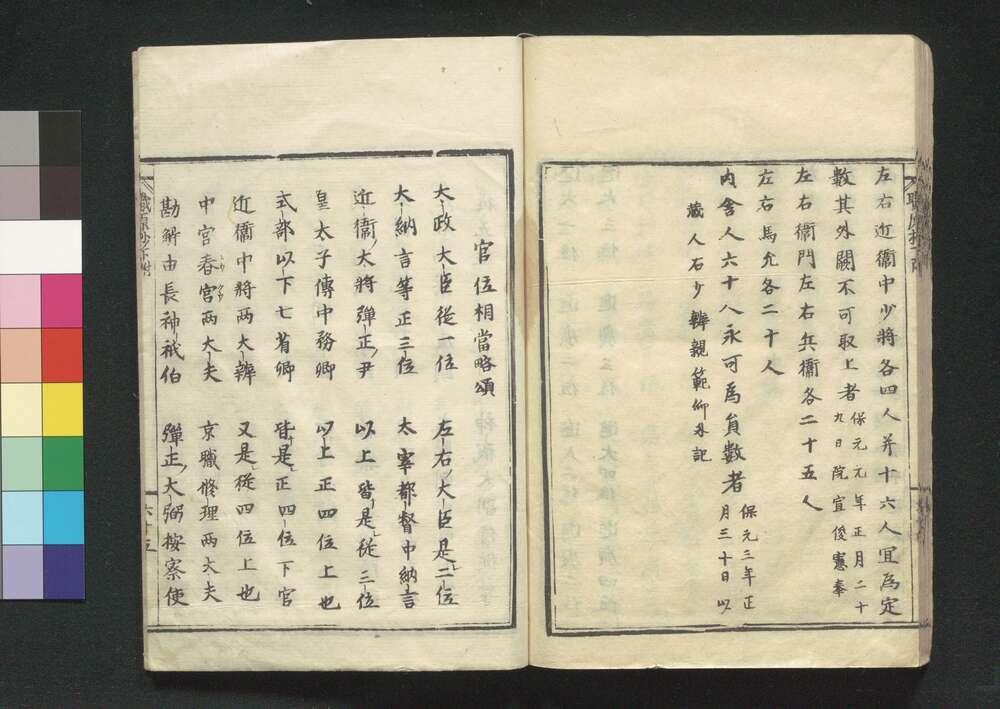 左右近衞中少將各四人并十六人冝爲定
數其外闕不可取上者保元元年正月二十
九日院宣俊憲奉
左右衞門左右兵衞各二十五人
左右馬允各二十人
内舍人六十人永可爲負數者保元三年正
月三十日以
藏人右少辨親範仰外記
官位相當略頌
太政大臣從一位 左右大臣是二位
大納言等正三位 太宰都督中納言
近衞大將彈正尹 以上皆是從三位
皇太子傅中務卿 以上正四位上也
式部以下七省卿 皆是正四位下官
近衞中將两大辨 又是從四位上也
中宮春宮两大夫 京職修理两大夫
勘解由長神祇伯 彈正大弼按察使
職原抄下附
六十五